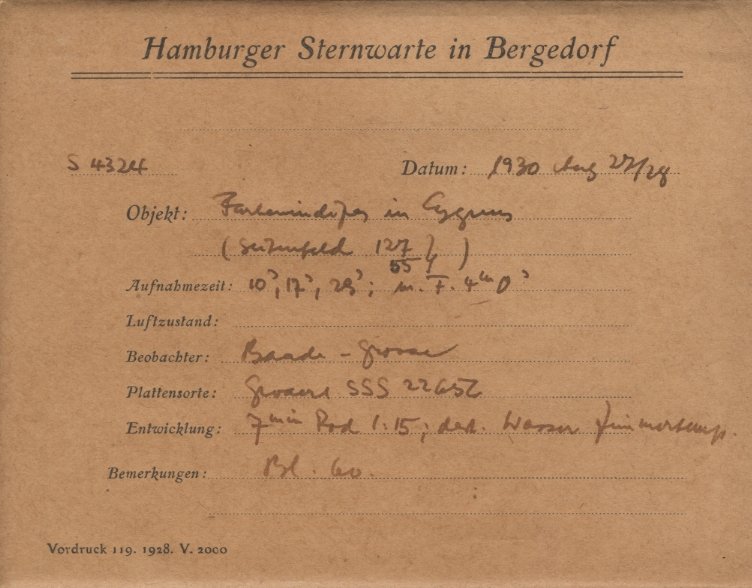 Hamburger Sternwarte in Bergedorf
S 4324
Datum: 1930 Aug 27/28
Objekt: Farbenindizes in Cygnus
( Seitenfeld 127/55 )
Aufnahmezeit: 10s, 17s, 29s; m. F. 4m 0s
Luftzustand:
Beobachter: Baade - Grosse
Plattensorte: SSS 22652
Entwicklung: 7 min Rod 1:15; dest. Wasser Zimmertemp.
Bemerkungen: Bl. 60.
Vordruck 119. 1928. V. 2000